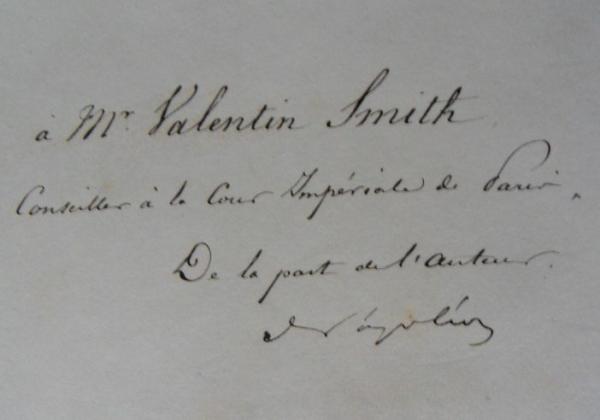 à Mr. Valentin Smith
Conseiller à la Cour Impériale de Paris.
De la part de l'auteur.